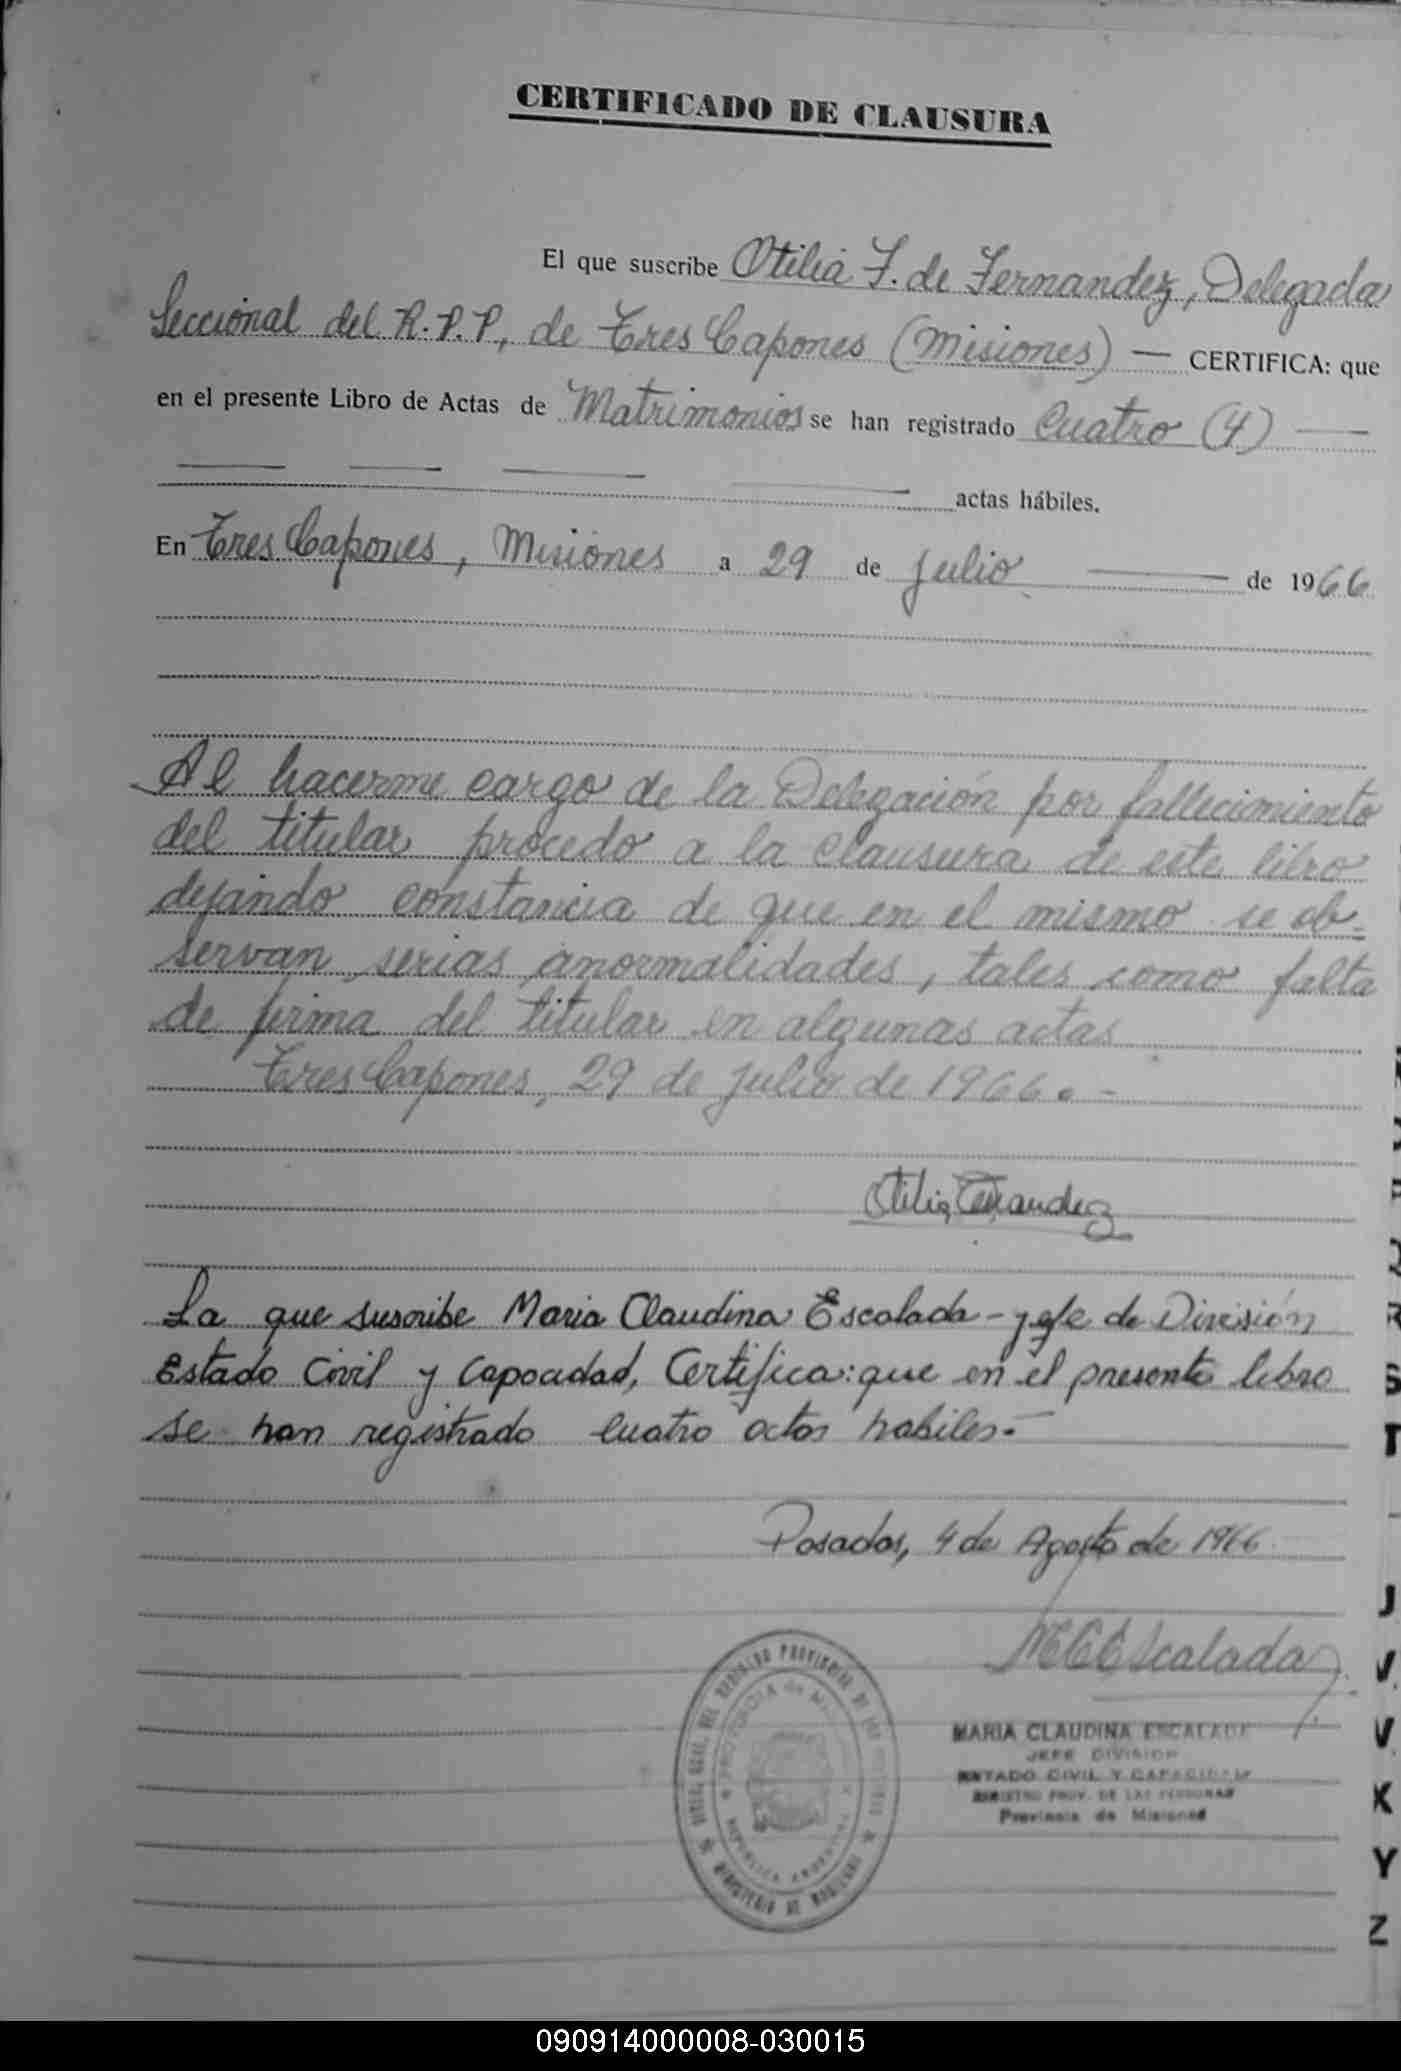 CERTIFICADO DE CLAUSURA
El que suscribe Otilia F. de Fernandez, Delegada
Seccional del R.P.P., de Tres Capones (Misiones) — CERTIFICA: que
en el presente Libro de Actas de Matrimonios se han registrado Cuatro (4) —
— — — — actas hábiles.
En Tres Capones, Misiones a 29 de julio — de 1966
Al hacerme cargo de la Delegación por fallecimiento
del titular procedo a la clausura de este libro
dejando constancia de que en el mismo se ob-
servan serias anormalidades, tales como falta
de firma del titular en algunas actas
Tres Capones, 29 de julio de 1966.-
Otilia Fernandez
La que suscribe Maria Claudina Escalada - jefe de División
Estado Civil y Capacidad, Certifica: que en el presente libro
se han registrado cuatro actas habiles.-
Posadas, 4 de Agosto de 1966
MCEscalada
MARIA CLAUDINA ESCALADA
JEFE DIVISION
ESTADO CIVIL Y CAPACIDAD
REGISTRO PROV. DE LAS PERSONAS
Provincia de Misiones
PROVINCIA de
REPUBLICA ARGENTINA
R
S
T
J
V
V
K
Y
Z
090914000008-030015